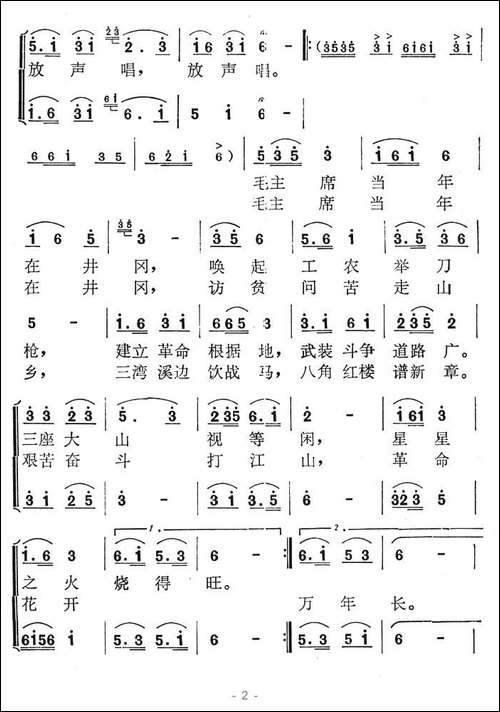 5. i 3 i 3 5 2 . 3 i 6 3 i 6 - : ( 3 5 3 5 3 i 6 i 6 i 3 i
放声唱， 放声唱。
i. 6 3 i 6 i 6 . i 5 i 6 -
6 6 i 3 5 6 2 i 6 ) 5 3 5 3 i 6 i 6
毛主席当年
毛主席当年
i 6 5 3 5 3 - 3 5 6 5 . 6 i 3 . 5 3 6
在井冈， 唤起工农举刀
在井冈， 访贫问苦走山
5 - i . 6 3 i 6 6 5 3 i . 3 6 i 2 3 5 2
枪， 建立革命根据地， 武装斗争道路广。
乡， 三湾溪边饮战马， 八角红楼谱新章。
3 3 2 3 5 . 3 2 3 5 6 . i 2 - i 6 i 3
三座大山视等闲， 星星
艰苦奋斗打江山， 革命
3 i 2 5 3 - 3 i 3 . 5 6 - 3 2 3 5
1. 2.
i . 6 3 6 . i 5 . 3 6 - : 6 . i 5 . 3 6 -
之火烧得旺。
花开 万年长。
6 i 5 6 i 5 . 3 5 . i 6 - : 5 . 3 5 . i 6 -
- 2 -